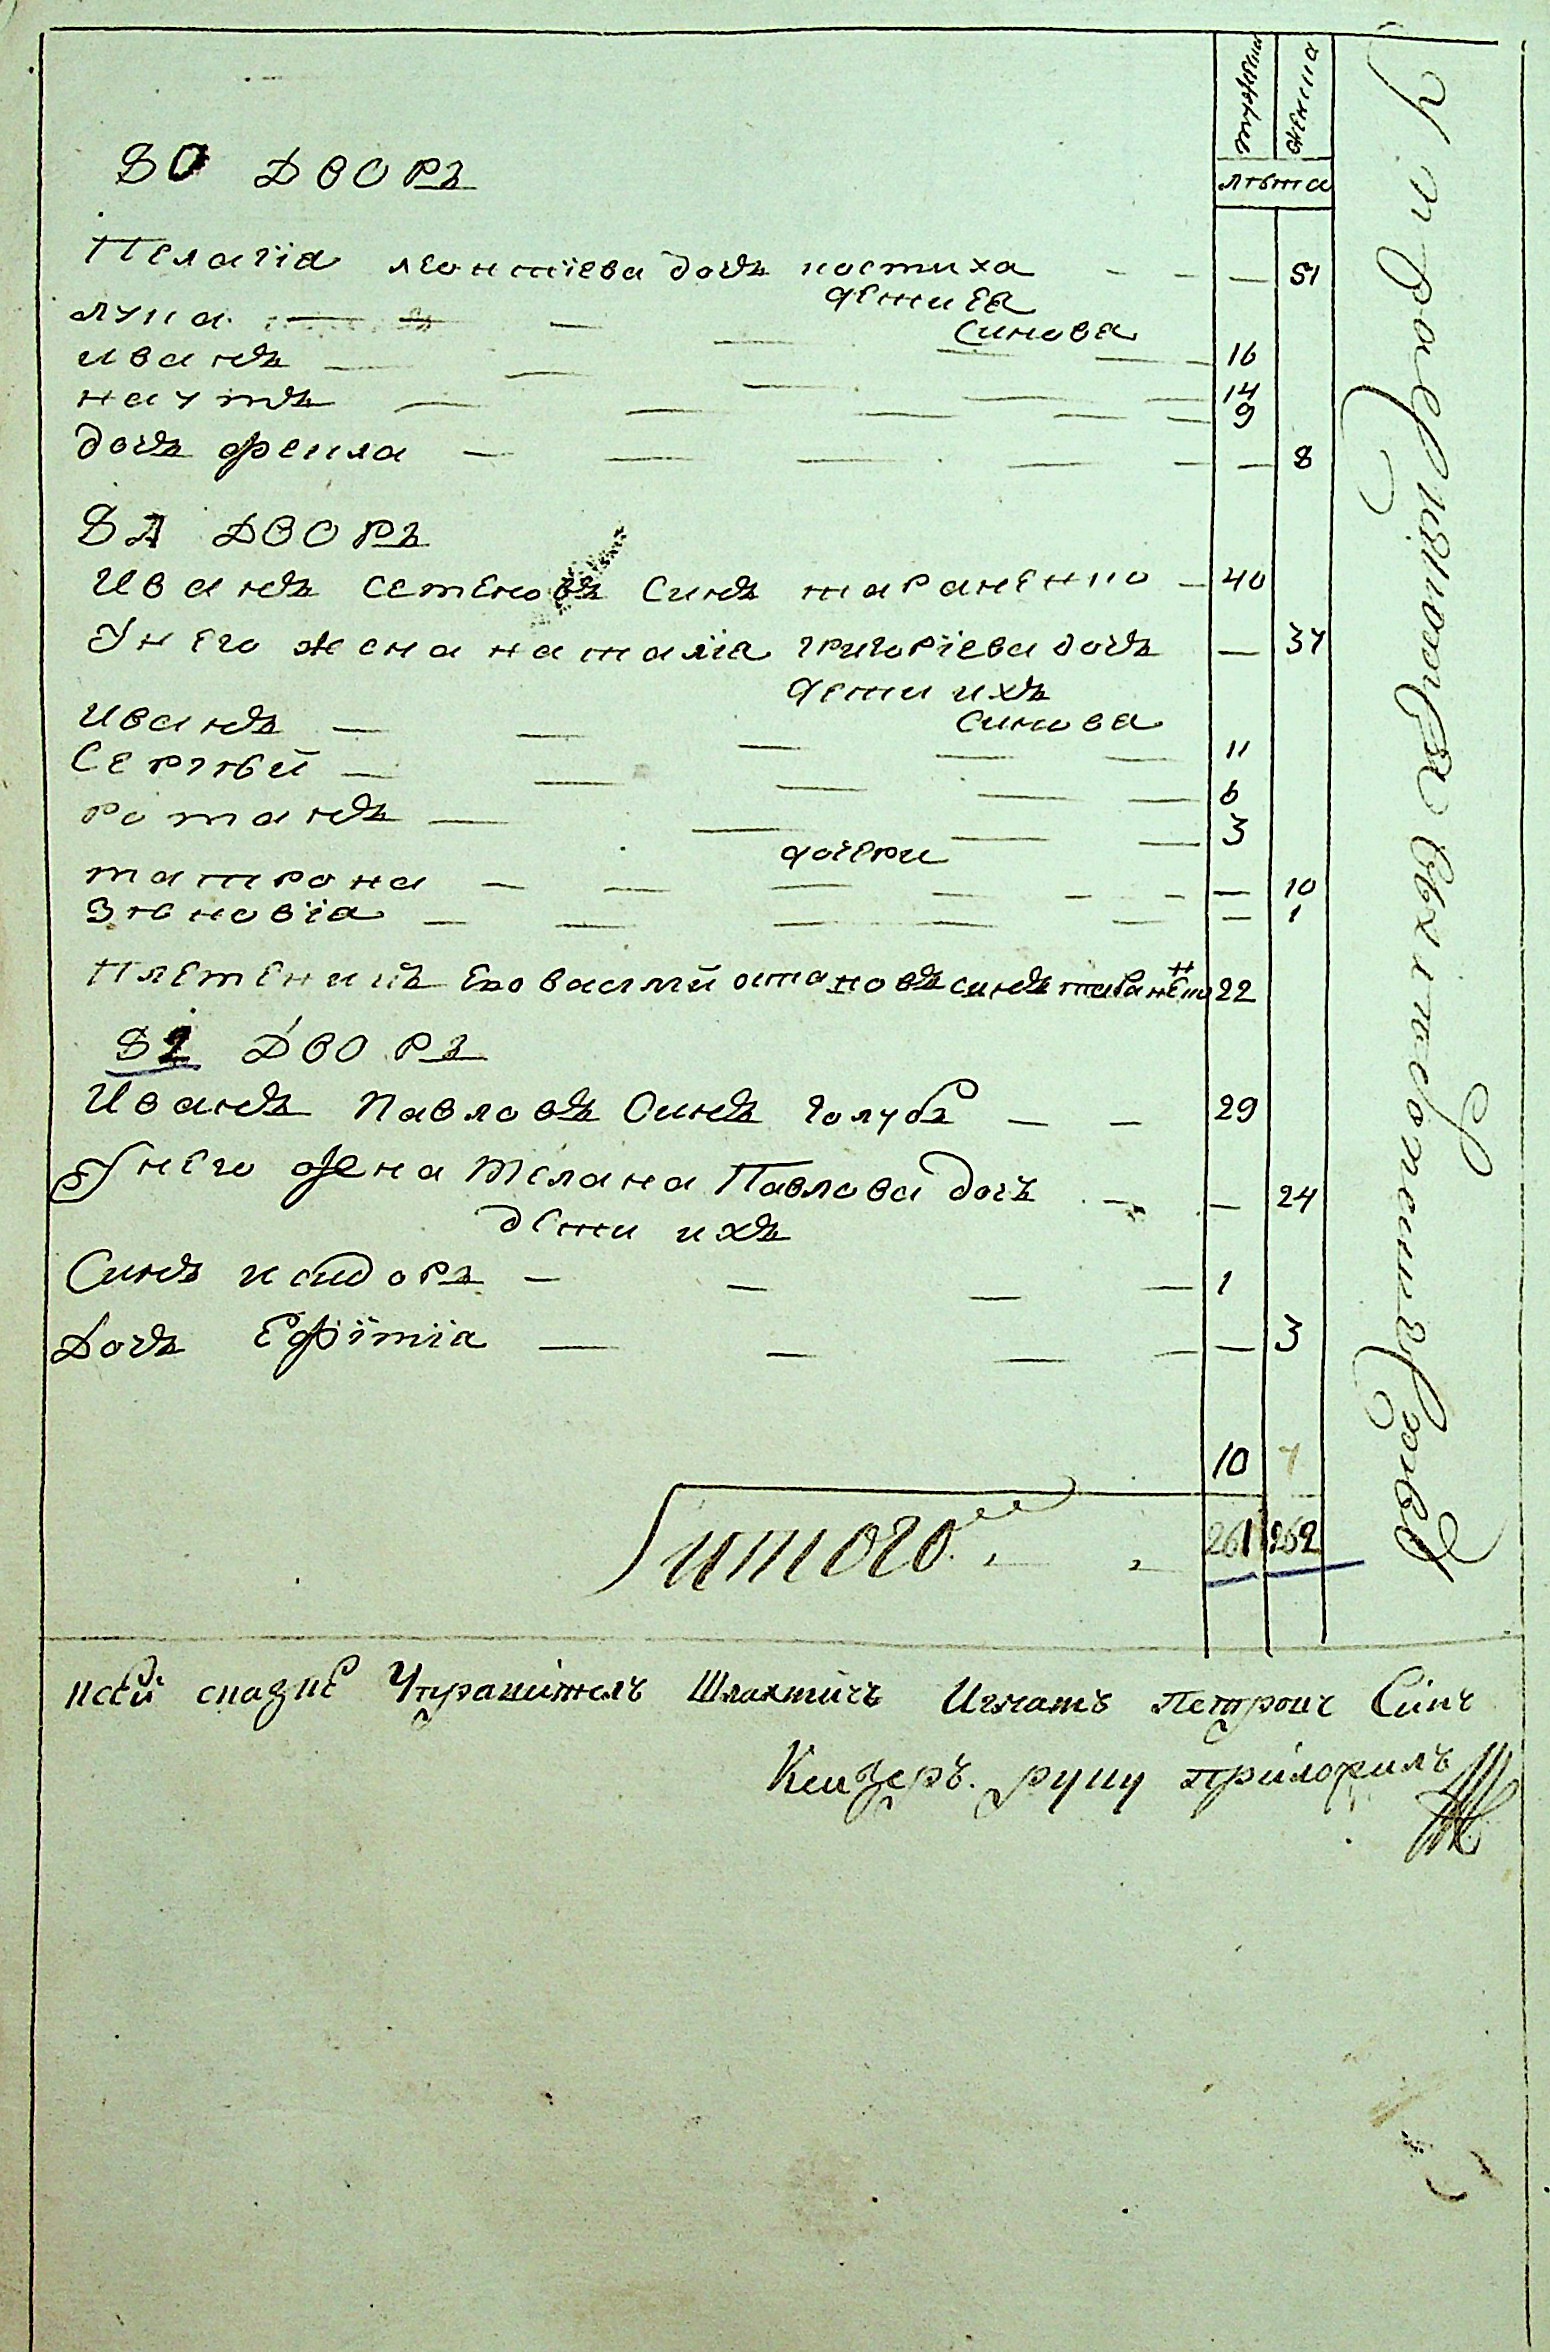 мужеска женска
лѣта
80 Дворъ
Пелагіа леонтіева дочъ костиха — — — 51
дети ей
синова
лука — — — 16
иванъ — — — — 14
наумъ — — — — — — 9
дочъ фекла — — — — — — 8
81 Дворъ
Иванъ семеновъ Синъ тараненко — 40
У него жена наталіа григоріева дочъ — 37
дети ихъ
синова
Иванъ — — — — — 11
Сергѣй — — — — — 6
романъ — — — — 3
дочери
матрона — — — — — — — 10
Зѣновіа — — — — — — — 1
Племеникъ Его василий синъ 22
82 Дворъ
Иванъ Павловъ Синъ голубъ — — 29
У него жена Мелана Павлова дочъ — — 24
дети ихъ
Синъ исидоръ — — — — 1
Дочъ Ефіміа — — — — — 3
10 7
итого 261 262
сей сказке Шляхтичъ Игнатъ Петровъ Синъ
руку приложилъ